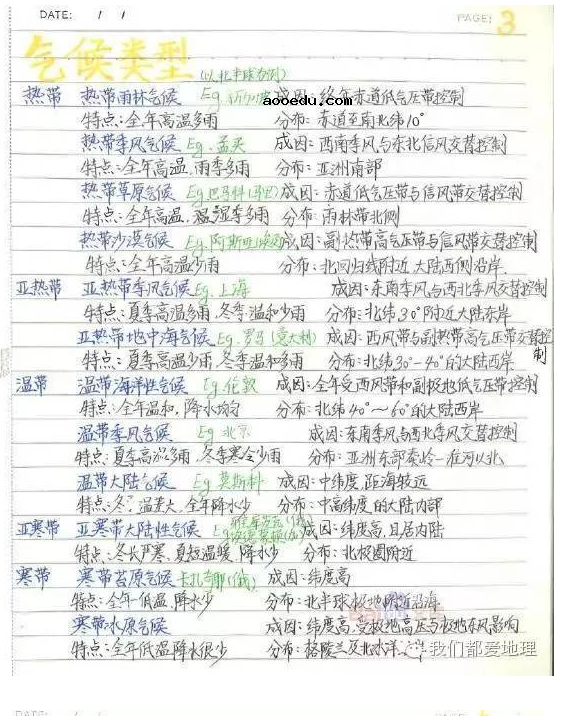 DATE: / /
PAGE: 3
气候类型 (以北半球为例)
热带 热带雨林气候 Eg. 成因:终年赤道低气压带控制
aooedu.com
特点:全年高温多雨 分布:赤道至南北纬10°
热带季风气候 Eg. 孟买 成因:西南季风与东北信风交替控制
特点:全年高温,雨季多雨 分布:亚洲南部
热带草原气候 Eg. 巴马科(马里) 成因:赤道低气压带与信风带交替控制
特点:全年高温,湿季多雨 分布:雨林带北侧
热带沙漠气候 Eg. 成因:副热带高气压带与信风带交替控制
特点:全年高温少雨 分布:北回归线附近大陆西侧沿岸.
亚热带 亚热带季风气候 Eg. 上海 成因:东南季风与西北季风交替控制
特点:夏季高温多雨.冬季温和少雨 分布:北纬30°附近大陆东岸
亚热带地中海气候 Eg. 罗马(意大利) 成因:西风带与副热带高气压带交替控制
特点:夏季高温少雨.冬季温和多雨 分布:北纬30°-40°的大陆西岸
温带 温带海洋性气候 Eg. 伦敦 成因:全年受西风带和副极地低气压带控制
特点:全年温和,降水均匀 分布:北纬40°～60°的大陆西岸
温带季风气候 Eg 北京 成因:东南季风与西北季风交替控制
特点:夏季高温多雨.冬季寒冷少雨 分布:亚洲东部秦岭-淮河以北
温带大陆气候 Eg. 莫斯科 成因:中纬度,距海较远
特点:冬 温差大.全年降水少 分布:中高纬度的大陆内部
亚寒带 亚寒带大陆性气候 Eg. 成因:纬度高,且居内陆
特点:冬长严寒.夏短温暖,降水少 分布:北极圈附近
寒带 寒带苔原气候 成因:纬度高
特点:全年低温,降水少 分布:北半球极地附近沿海
寒带冰原气候 成因:纬度高.受极地高压与极地东风影响
特点:全年低温降水很少 分布:格陵兰及北冰洋
我们都爱地理